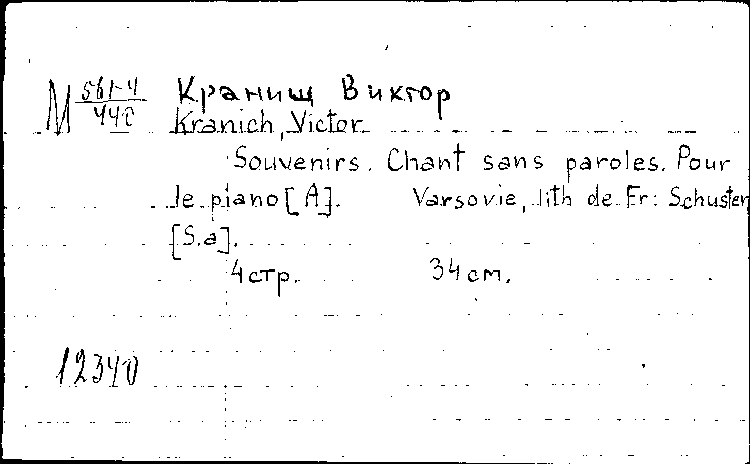 М 561-4/440 Краниш Виктор
Kranich, Victor
Souvenirs. Chant sans paroles. Pour
le piano [A]. Varsovie, lith de Fr: Schuster
[S.a].
4 стр. 34 см.
12340